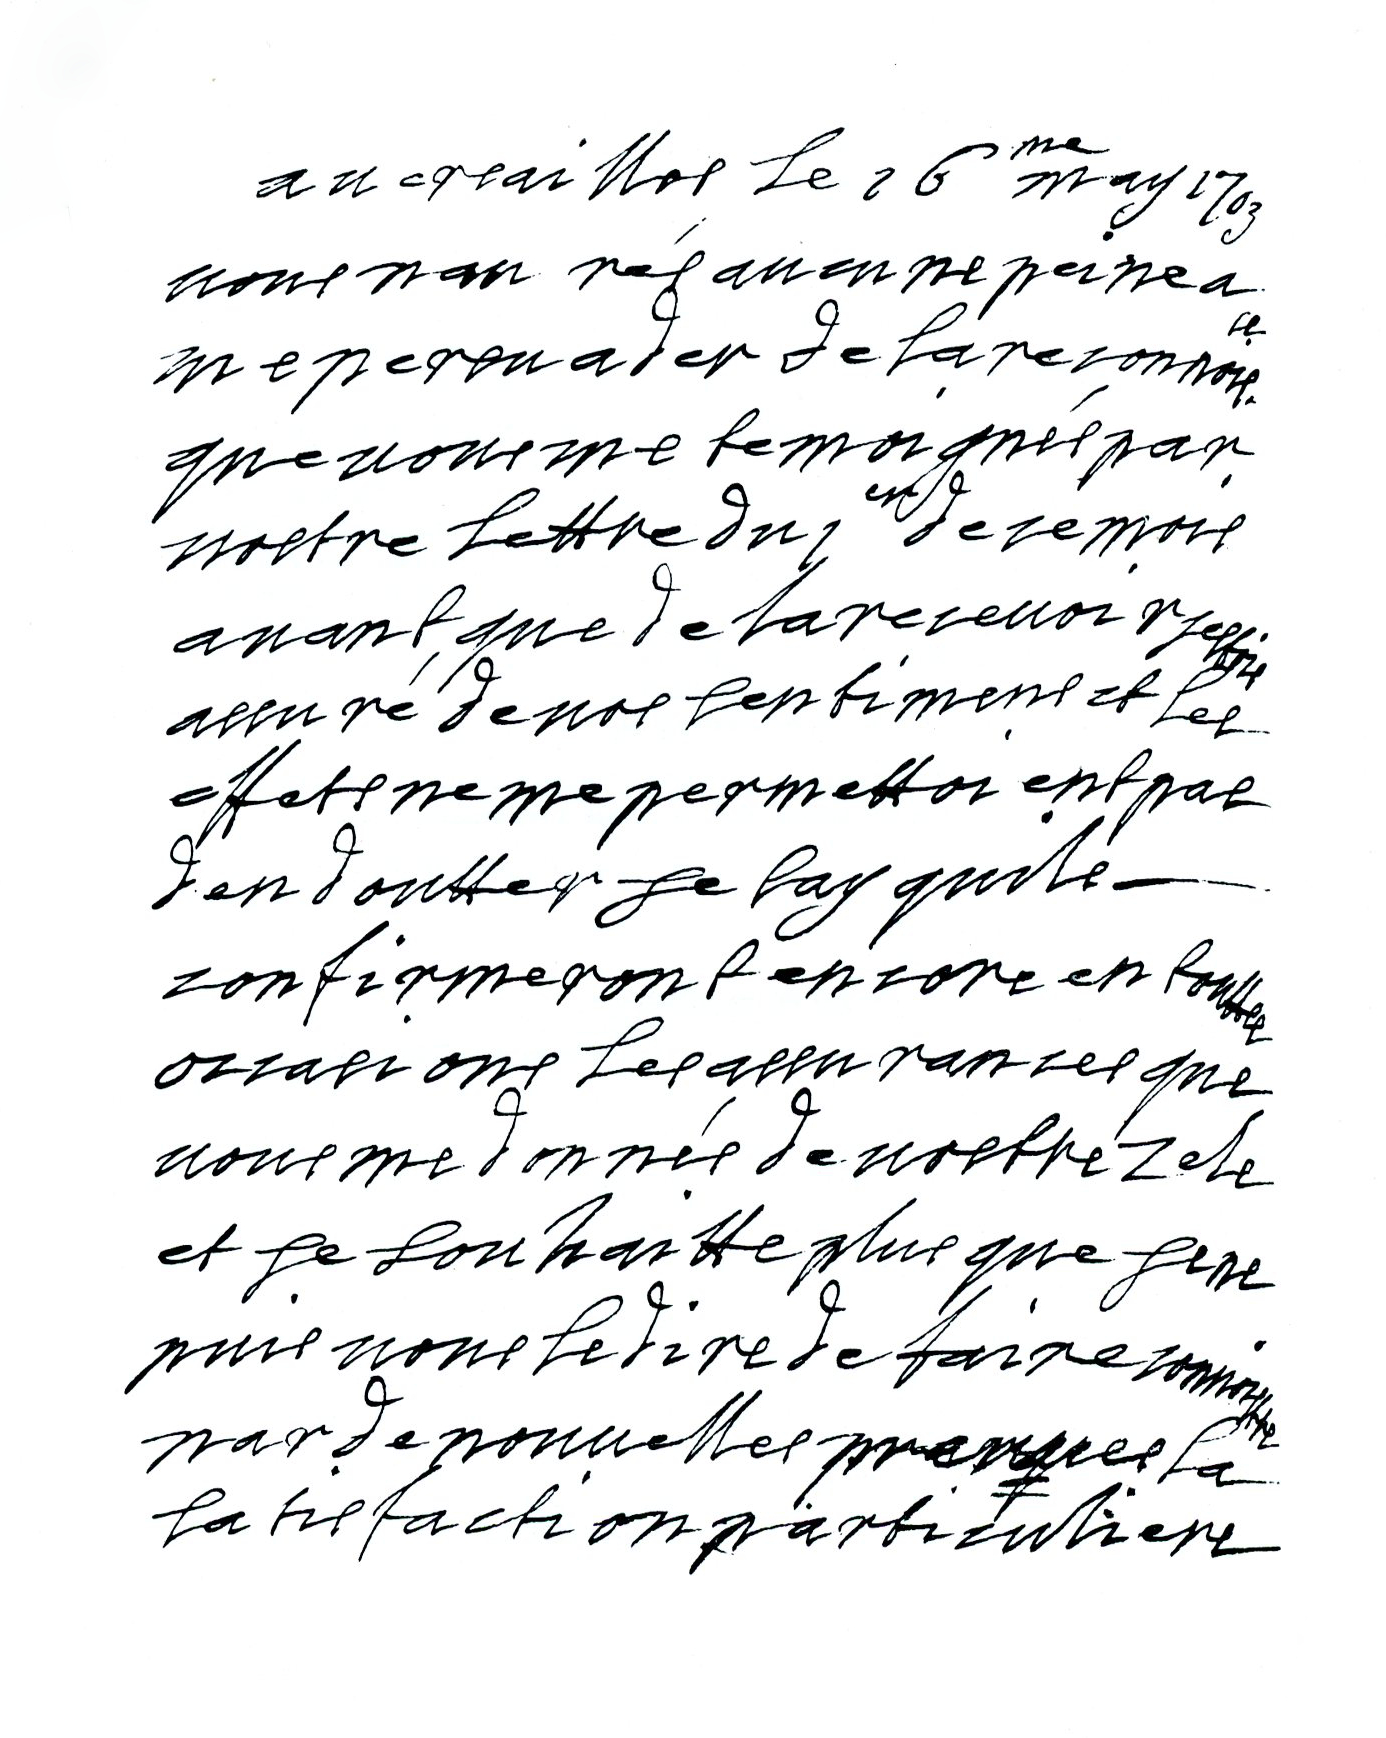 a uersailles le 16 me may 1703
uous n aurés aucunne peine a
me persuader de la reconnoisce
que uous me temoignés par
uostre lettre du 1 er de ce mois
auant que de la receuoir jestois
assuré de uos sentimens et les
effets ne me permettoient pas
den doutter ge say quils
confirmeront encore en touttes
occasions les assurances que
uous me donnés de uostre zele
et ge souhaitte plus que ge ne
puis uous le dire de faire connoistre
par de nouuelles preuues la
satisfaction particuliere